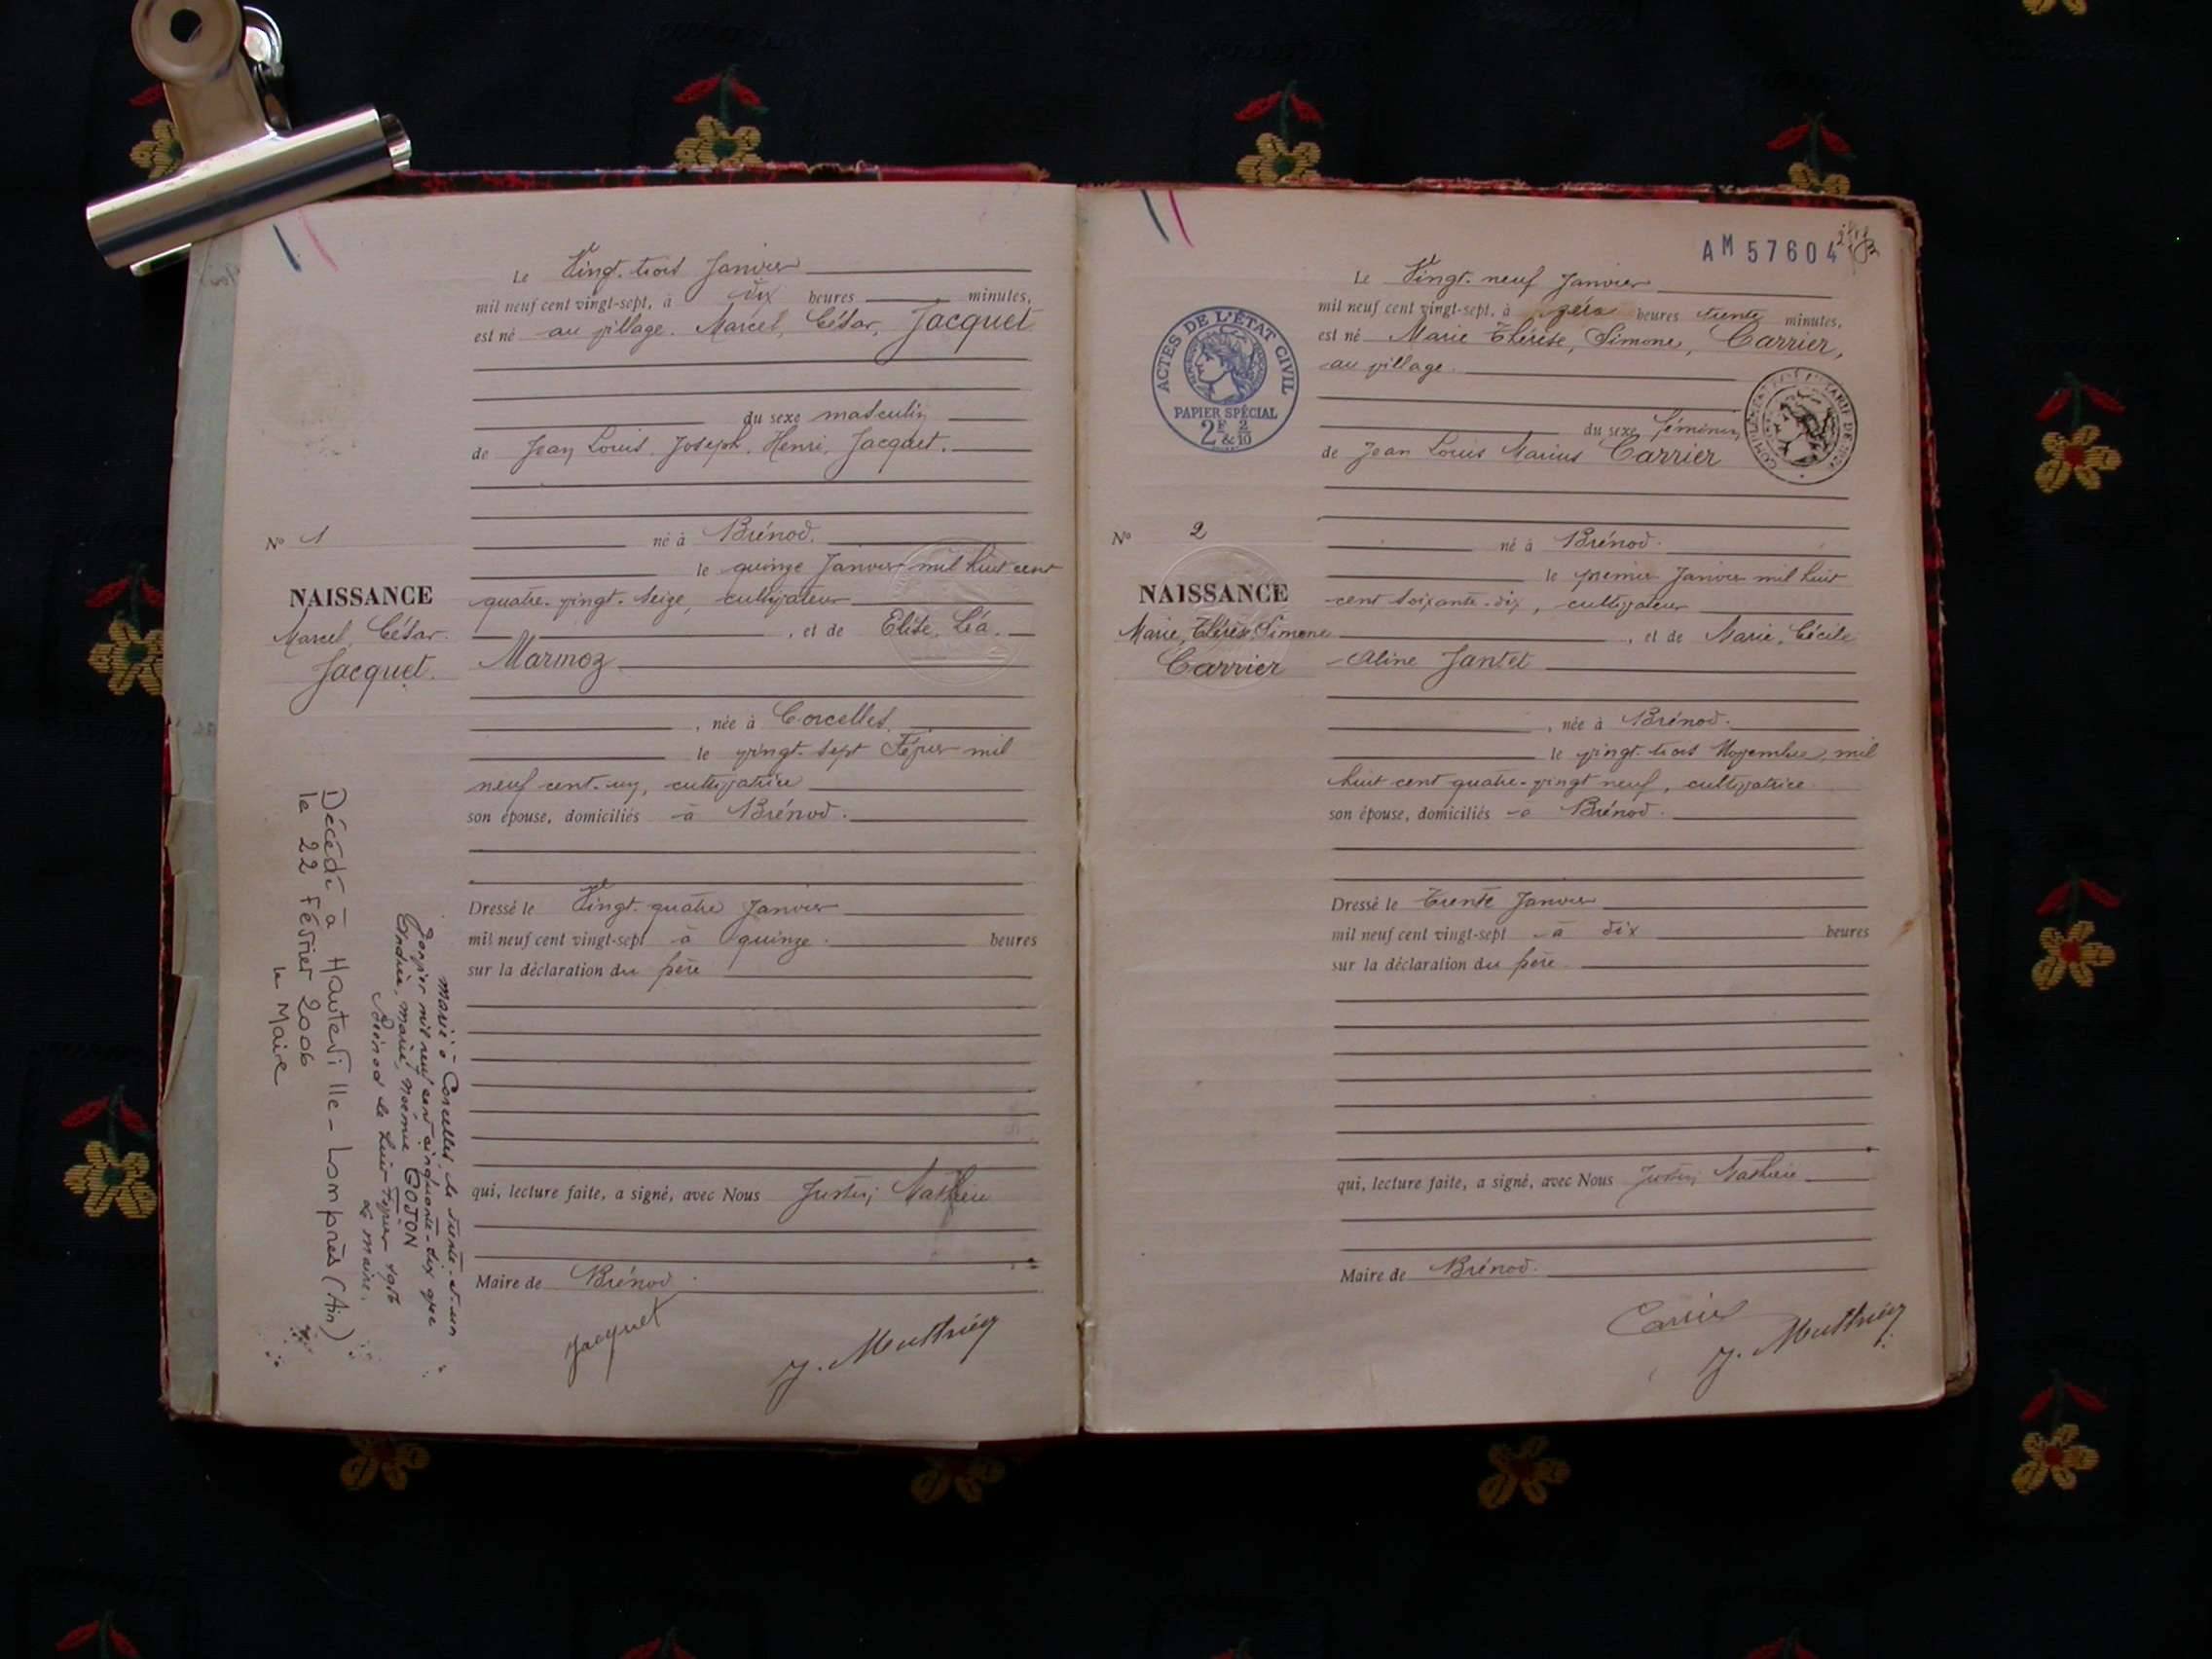 Le Vingt-trois Janvier
mil neuf cent vingt-sept, à dix heures minutes,
est né au village. Marcel, César, Jacquet
du sexe masculin
de Jean Louis, Joseph, Henri, Jacquet.
né à Brénod.
le quinze Janvier mil huit cent
quatre-vingt-seize, cultivateur
, et de Elise, Léa,
Marmoz
, née à Corcelles,
le vingt-sept Février mil
neuf cent-un, cultivatrice
son épouse, domiciliés à Brénod.
Dressé le Vingt-quatre Janvier
mil neuf cent vingt-sept à quinze heures
sur la déclaration du père
qui, lecture faite, a signé, avec Nous Justin Mathieu
Maire de Brénod.
Jacquet
J. Mathieu
No 1
NAISSANCE
Marcel, César.
Jacquet.
marié à Corcelles, le trente-et-un
Janvier mil neuf cent cinquante-six avec
Andrée, Marie, Noémie GOJON
Brénod le huit Février 1956
Le maire.
Décédé à Hauteville-Lompnès (Ain)
le 22 février 2006
Le Maire
AM 57604
Le Vingt-neuf Janvier
mil neuf cent vingt-sept, à zéro heures trente minutes,
est né Marie Thérèse, Simone, Carrier,
au village.
du sexe féminin
de Jean Louis Marius Carrier
né à Brénod.
le premier Janvier mil huit
cent soixante-dix, cultivateur
, et de Marie, Cécile
Aline Jantet
, née à Brénod.
le vingt-trois Novembre mil
huit cent quatre-vingt neuf, cultivatrice
son épouse, domiciliés à Brénod.
Dressé le Trente Janvier
mil neuf cent vingt-sept à dix heures
sur la déclaration du père
qui, lecture faite, a signé, avec Nous Justin Mathieu
Maire de Brénod.
Carrier
J. Mathieu
ACTES DE L'ÉTAT CIVIL
PAPIER SPÉCIAL
2F & 2/10
No 2
NAISSANCE
Marie, Thérèse Simone
Carrier